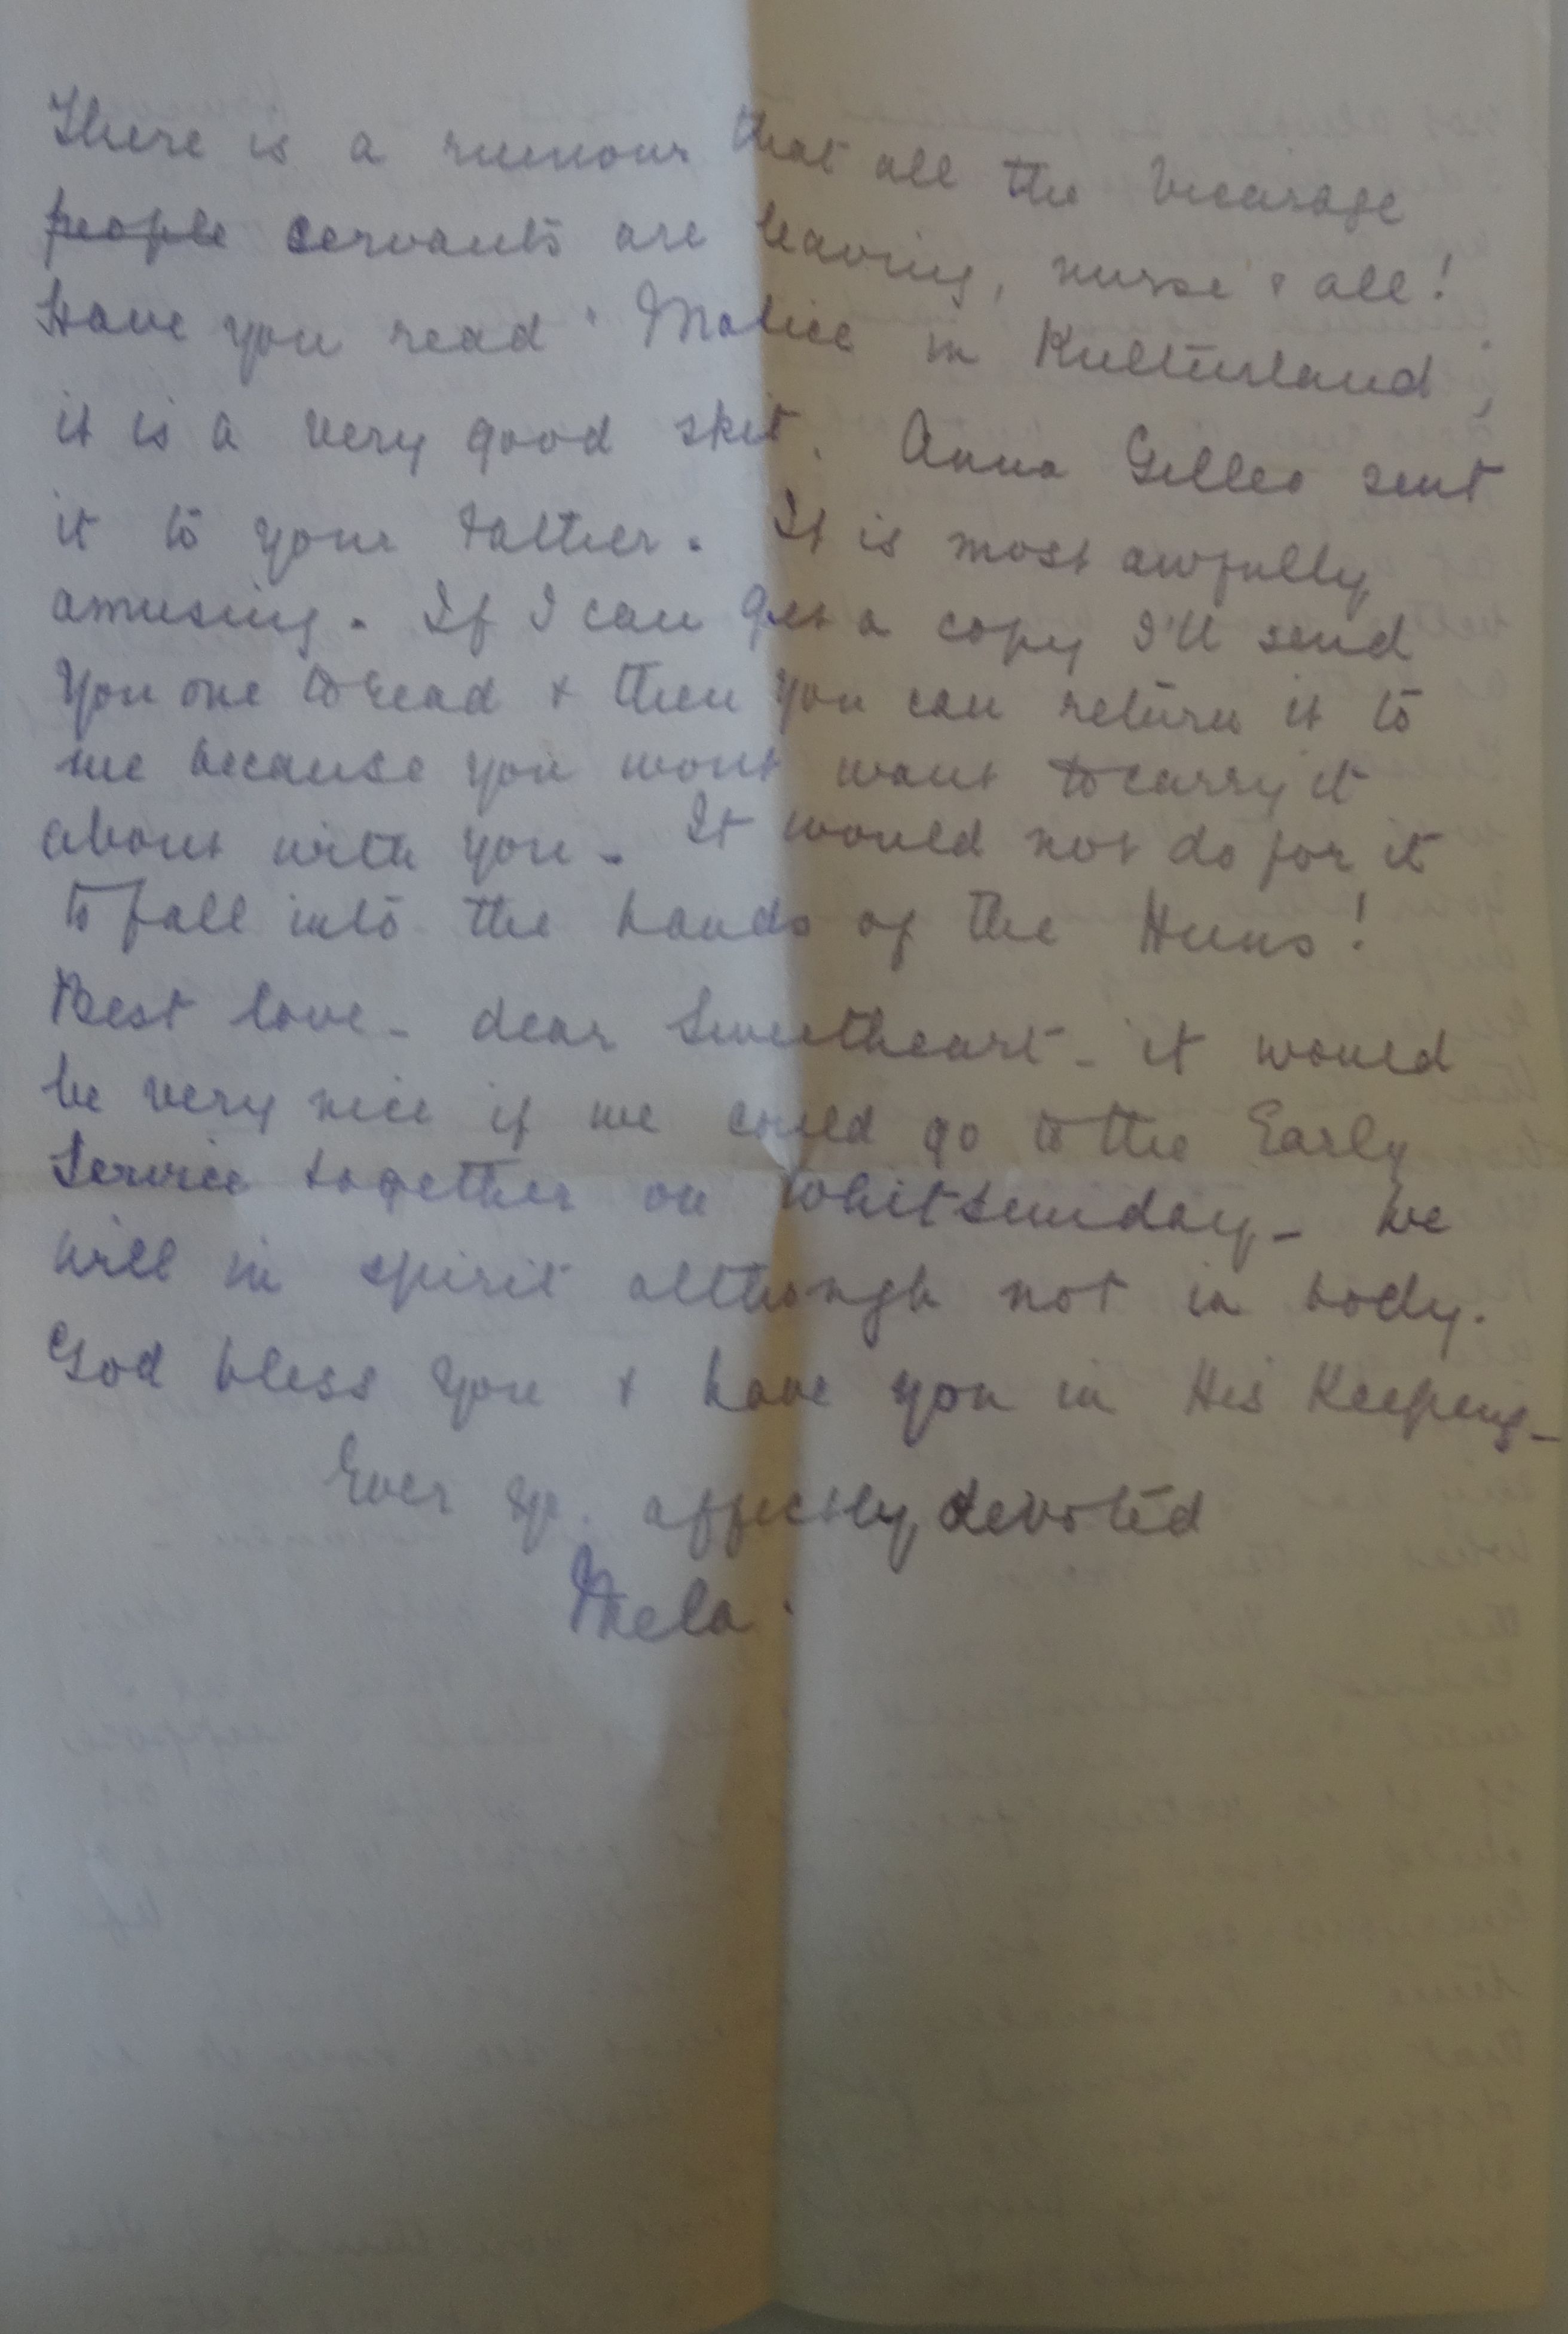 There is a rumour that all the Vicarage
people servants are leaving, nurse & all!
Have you read "Malice in Kulturland,
it is a very good skit. Anna Gilles sent
it to your Father. It is most awfully
amusing. If I can get a copy I'll send
you one to read & then you can return it to
me because you wont want to carry it
about with you - It would not do for it
to fall into the hands of the Huns!
Best love - dear Sweetheart - it would
be very nice if we could go to the Early
Service together on Whitsunday - We
will in spirit although not in body.
God bless you & have you in His Keeping -
Ever yr. affectly devoted